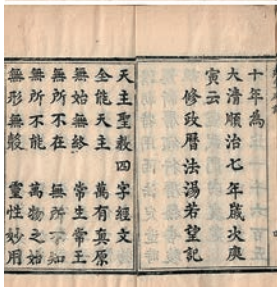 十年為
大清順治七年歲次庚
寅云
修政曆法湯若望記
天主聖教四字經文
全能天主　萬有真原
無始無終　常生常王
無所不在　無所不知
無所不能　萬物之始
無形無聲　靈性妙用